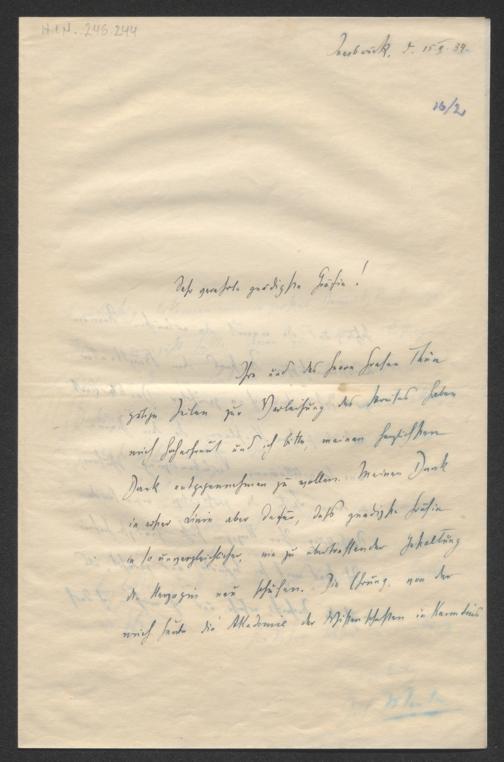 H.I.N. 245.244
Innsbruck, d. 15. 39.
16/2
Sehr verehrte gnädigste Gräfin!
Ihre und des Herrn Grafen Thun
gütige Zeilen zur Verleihung des Preises haben
mich hocherfreut und ich bitte meinen herzlichsten
Dank entgegennehmen zu wollen. Meinen Dank
in erster Linie aber dafür, daß gnädigste Gräfin
in so unvergleichlicher, nie zu übertreffender Gestaltung
die Herzogin neu schufen. Die Ehrung, von der
mich heute die Akademie der Wissenschaften in Kenntnis